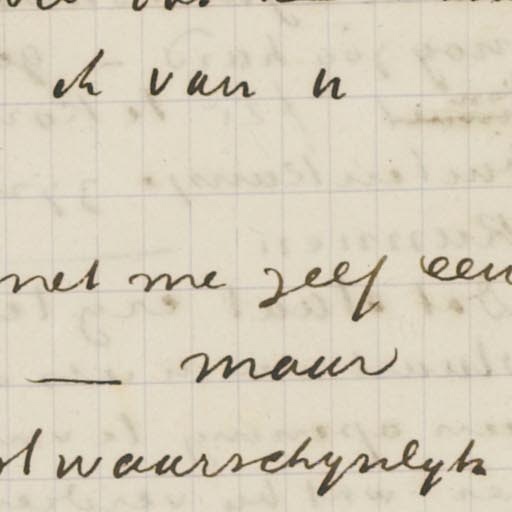 ik van u
met me zelf een
— maar
waarschynlyk